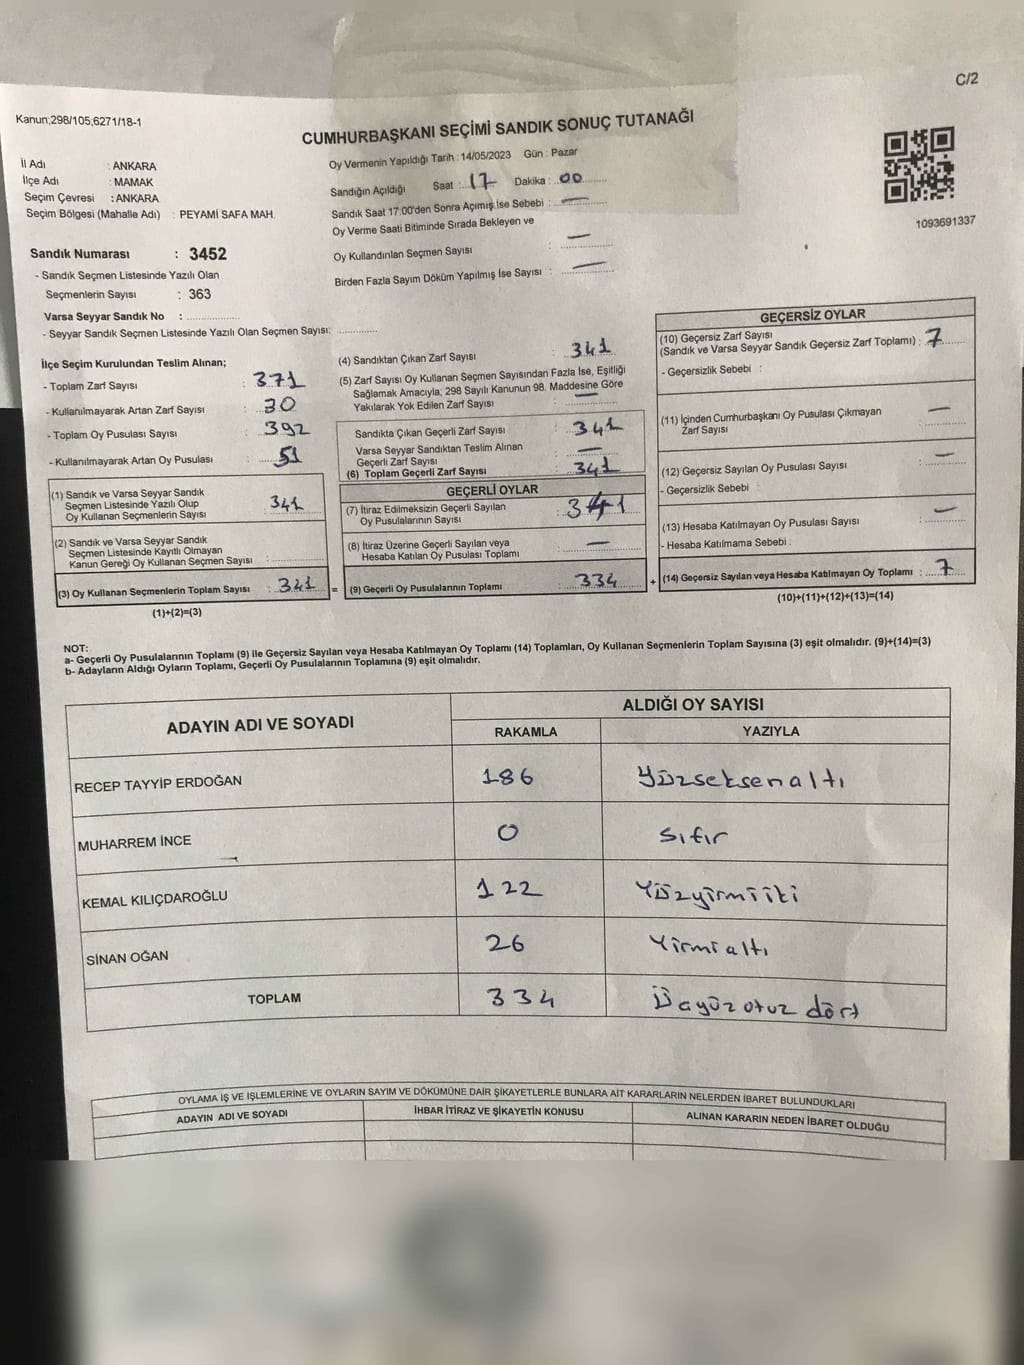 C/2
Kanun;298/105;6271/18-1
CUMHURBAŞKANI SEÇİMİ SANDIK SONUÇ TUTANAĞI
İl Adı : ANKARA
İlçe Adı : MAMAK
Seçim Çevresi : ANKARA
Seçim Bölgesi (Mahalle Adı) : PEYAMİ SAFA MAH.
Oy Vermenin Yapıldığı Tarih : 14/05/2023 Gün : Pazar
Sandığın Açıldığı Saat : 17 Dakika : 00
Sandık Saat 17:00'den Sonra Açımış İse Sebebi : —
Oy Verme Saati Bitiminde Sırada Bekleyen ve
Oy Kullandırılan Seçmen Sayısı : —
Birden Fazla Sayım Döküm Yapılmış İse Sayısı : —
1093691337
Sandık Numarası : 3452
- Sandık Seçmen Listesinde Yazılı Olan
Seçmenlerin Sayısı : 363
Varsa Seyyar Sandık No : ..................
- Seyyar Sandık Seçmen Listesinde Yazılı Olan Seçmen Sayısı: ..............
İlçe Seçim Kurulundan Teslim Alınan;
- Toplam Zarf Sayısı : 371
- Kullanılmayarak Artan Zarf Sayısı : 30
- Toplam Oy Pusulası Sayısı : 392
- Kullanılmayarak Artan Oy Pusulası : 51
(1) Sandık ve Varsa Seyyar Sandık
Seçmen Listesinde Yazılı Olup
Oy Kullanan Seçmenlerin Sayısı : 341
(2) Sandık ve Varsa Seyyar Sandık
Seçmen Listesinde Kayıtlı Olmayan
Kanun Gereği Oy Kullanan Seçmen Sayısı : ..............
(3) Oy Kullanan Seçmenlerin Toplam Sayısı : 341 =
(1)+(2)=(3)
(4) Sandıktan Çıkan Zarf Sayısı : 341
(5) Zarf Sayısı Oy Kullanan Seçmen Sayısından Fazla İse, Eşitliği
Sağlamak Amacıyla, 298 Sayılı Kanunun 98. Maddesine Göre
Yakılarak Yok Edilen Zarf Sayısı : —
Sandıkta Çıkan Geçerli Zarf Sayısı : 341
Varsa Seyyar Sandıktan Teslim Alınan
Geçerli Zarf Sayısı : —
(6) Toplam Geçerli Zarf Sayısı : 341
GEÇERLİ OYLAR
(7) İtiraz Edilmeksizin Geçerli Sayılan
Oy Pusulalarının Sayısı : 341
(8) İtiraz Üzerine Geçerli Sayılan veya
Hesaba Katılan Oy Pusulası Toplamı : —
(9) Geçerli Oy Pusulalarının Toplamı : 334 +
GEÇERSİZ OYLAR
(10) Geçersiz Zarf Sayısı
(Sandık ve Varsa Seyyar Sandık Geçersiz Zarf Toplamı) : 7
- Geçersizlik Sebebi :
(11) İçinden Cumhurbaşkanı Oy Pusulası Çıkmayan
Zarf Sayısı : —
(12) Geçersiz Sayılan Oy Pusulası Sayısı : —
- Geçersizlik Sebebi :
(13) Hesaba Katılmayan Oy Pusulası Sayısı : —
- Hesaba Katılmama Sebebi :
(14) Geçersiz Sayılan veya Hesaba Katılmayan Oy Toplamı : 7
(10)+(11)+(12)+(13)=(14)
NOT:
a- Geçerli Oy Pusulalarının Toplamı (9) ile Geçersiz Sayılan veya Hesaba Katılmayan Oy Toplamı (14) Toplamları, Oy Kullanan Seçmenlerin Toplam Sayısına (3) eşit olmalıdır. (9)+(14)=(3)
b- Adayların Aldığı Oyların Toplamı, Geçerli Oy Pusulalarının Toplamına (9) eşit olmalıdır.
ADAYIN ADI VE SOYADI ALDIĞI OY SAYISI
RAKAMLA YAZIYLA
RECEP TAYYİP ERDOĞAN 186 Yüzseksenaltı
MUHARREM İNCE 0 Sıfır
KEMAL KILIÇDAROĞLU 122 Yüzyirmiiki
SİNAN OĞAN 26 Yirmialtı
TOPLAM 334 Üçyüz otuz dört
OYLAMA İŞ VE İŞLEMLERİNE VE OYLARIN SAYIM VE DÖKÜMÜNE DAİR ŞİKAYETLERLE BUNLARA AİT KARARLARIN NELERDEN İBARET BULUNDUKLARI
ADAYIN ADI VE SOYADI İHBAR İTİRAZ VE ŞİKAYETİN KONUSU ALINAN KARARIN NEDEN İBARET OLDUĞU